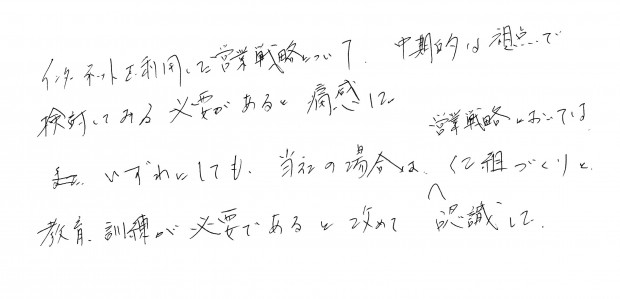 インターネットを利用した営業戦略について、中期的な視点で
検討してみる必要があると痛感した
営業戦略においては
いずれにしても、当社の場合は、仕組づくりと、
教育、訓練が必要であると改めて認識した。